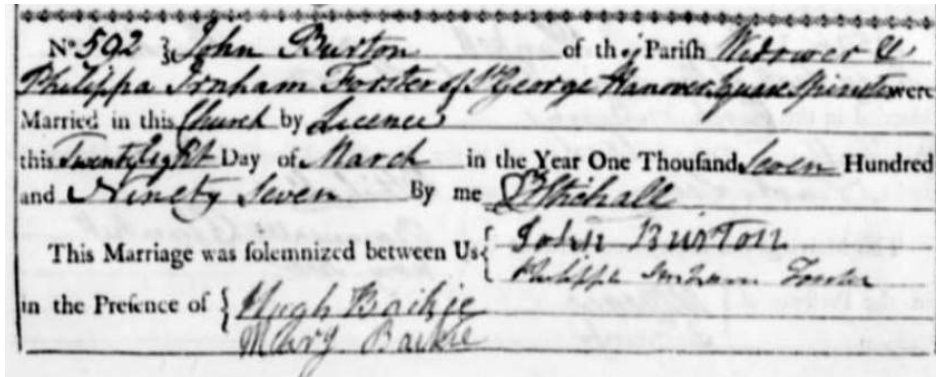 No 592 } John Burton of this Parish Widower &
Philippa Irnham Forster of St George Hanover Square Spinster were
Married in this Church by Licence
this Twenty Eight Day of March in the Year One Thousand Seven Hundred
and Ninety Seven By me
This Marriage was solemnized between Us { John Burton
Philippa Irnham Forster
in the Presence of { Hugh Baikie
Mary Baikie